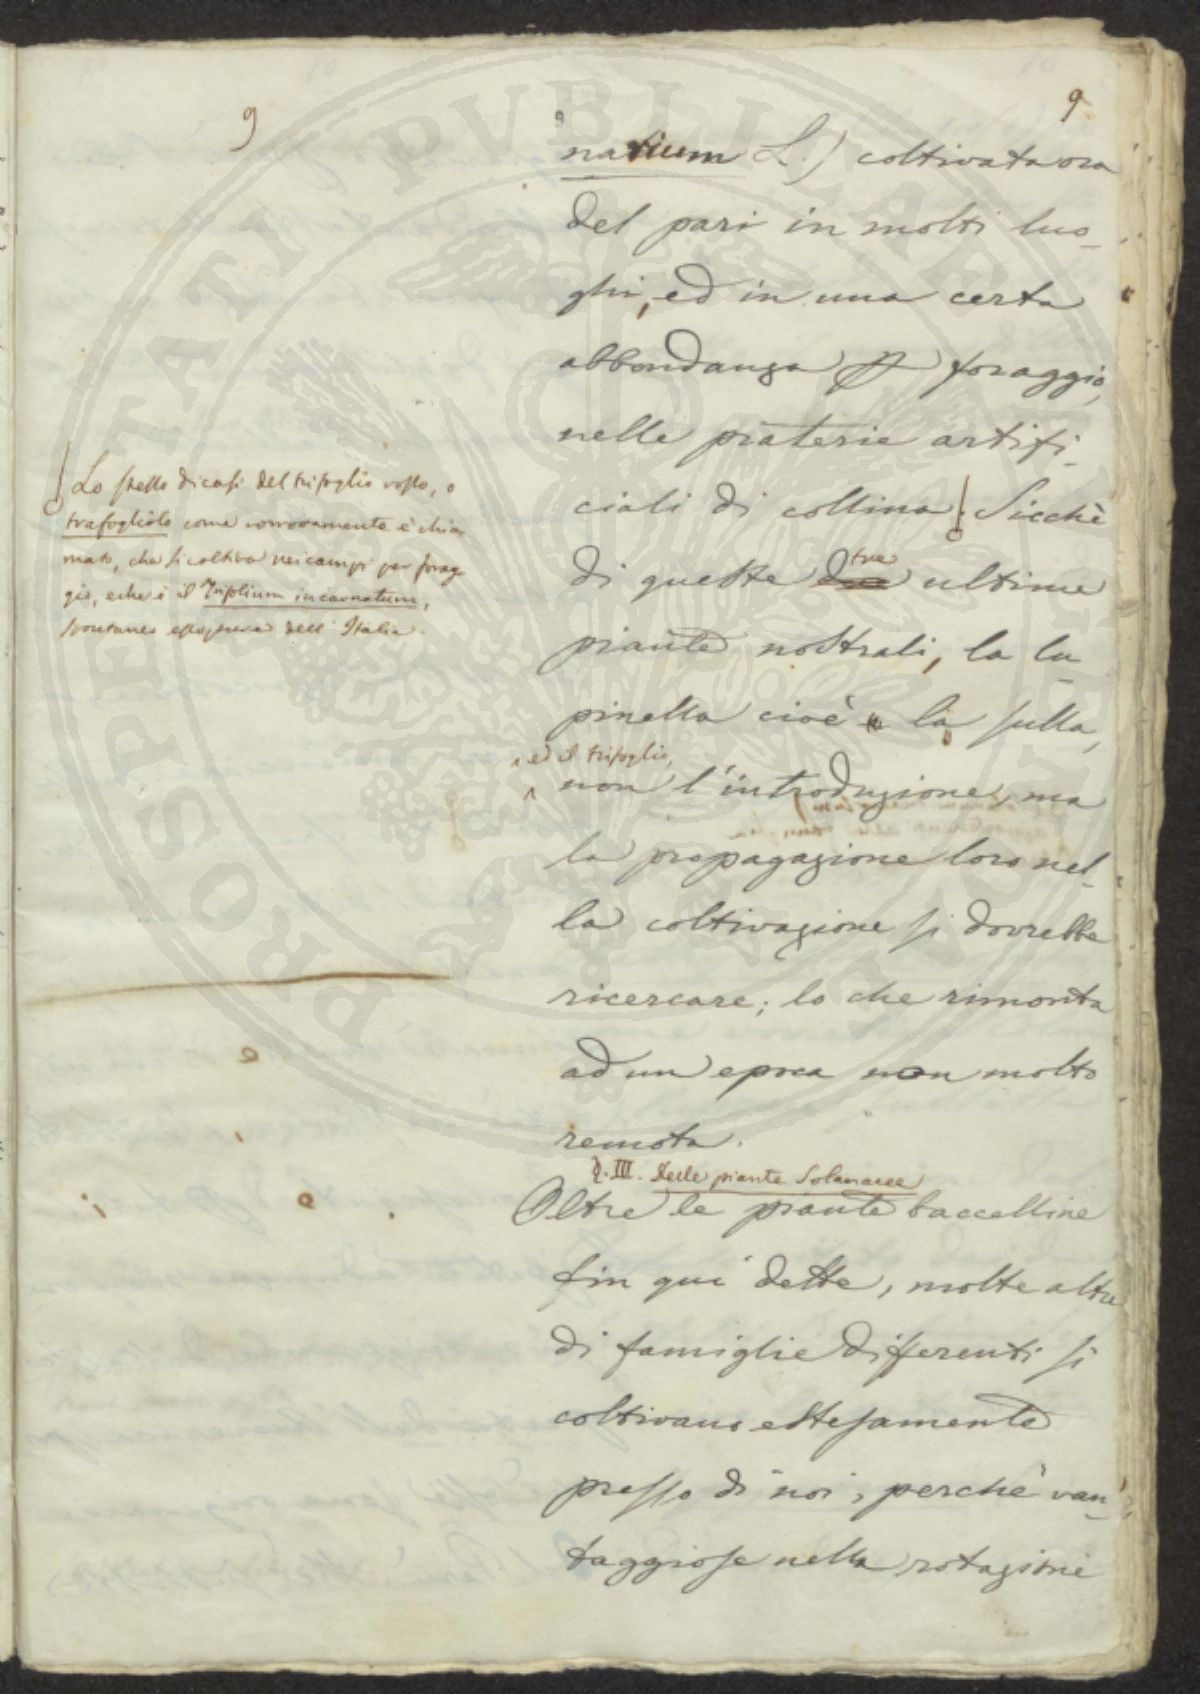 9
9
natium L.) coltivata ora
del pari in molti luo-
ghi, ed in una certa
abbondanza p foraggio,
nelle praterie artifi-
ciali di collina. Sicchè
di queste due tre ultime
piante nostrali, la lu-
pinella cioè la sulla,
ed il trifoglio,
non l'introduzione, ma
la propagazione loro nel-
la coltivazione si dovrebbe
ricercare; lo che rimonta
ad un epoca non molto
remota.
§. III. Delle piante Solanacee
Oltre le piante baccelline
fin quì dette, molte altre
di famiglie differenti si
coltivano estesamente
presso di noi, perchè van-
taggiose nella rotazione
Lo stesso dicasi del trifoglio rosso, o
trafogliolo come è chia
mato, che si coltiva nei campi per forag-
gio, e che è il Trifolium incarnatum,
spontaneo dell'Italia.
PROSPERITATI PUBLICAE